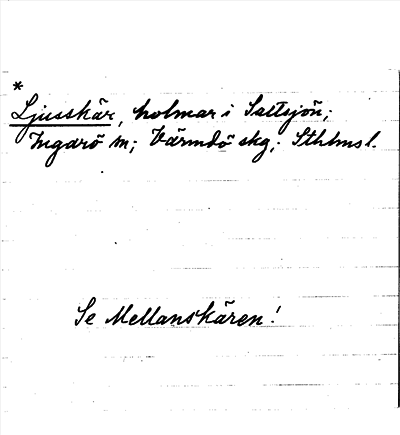 *
Ljusskär, holmar i Saltsjön;
Ingarö sn; Värmdö skg; Sthlms l.
Se Mellanskären!